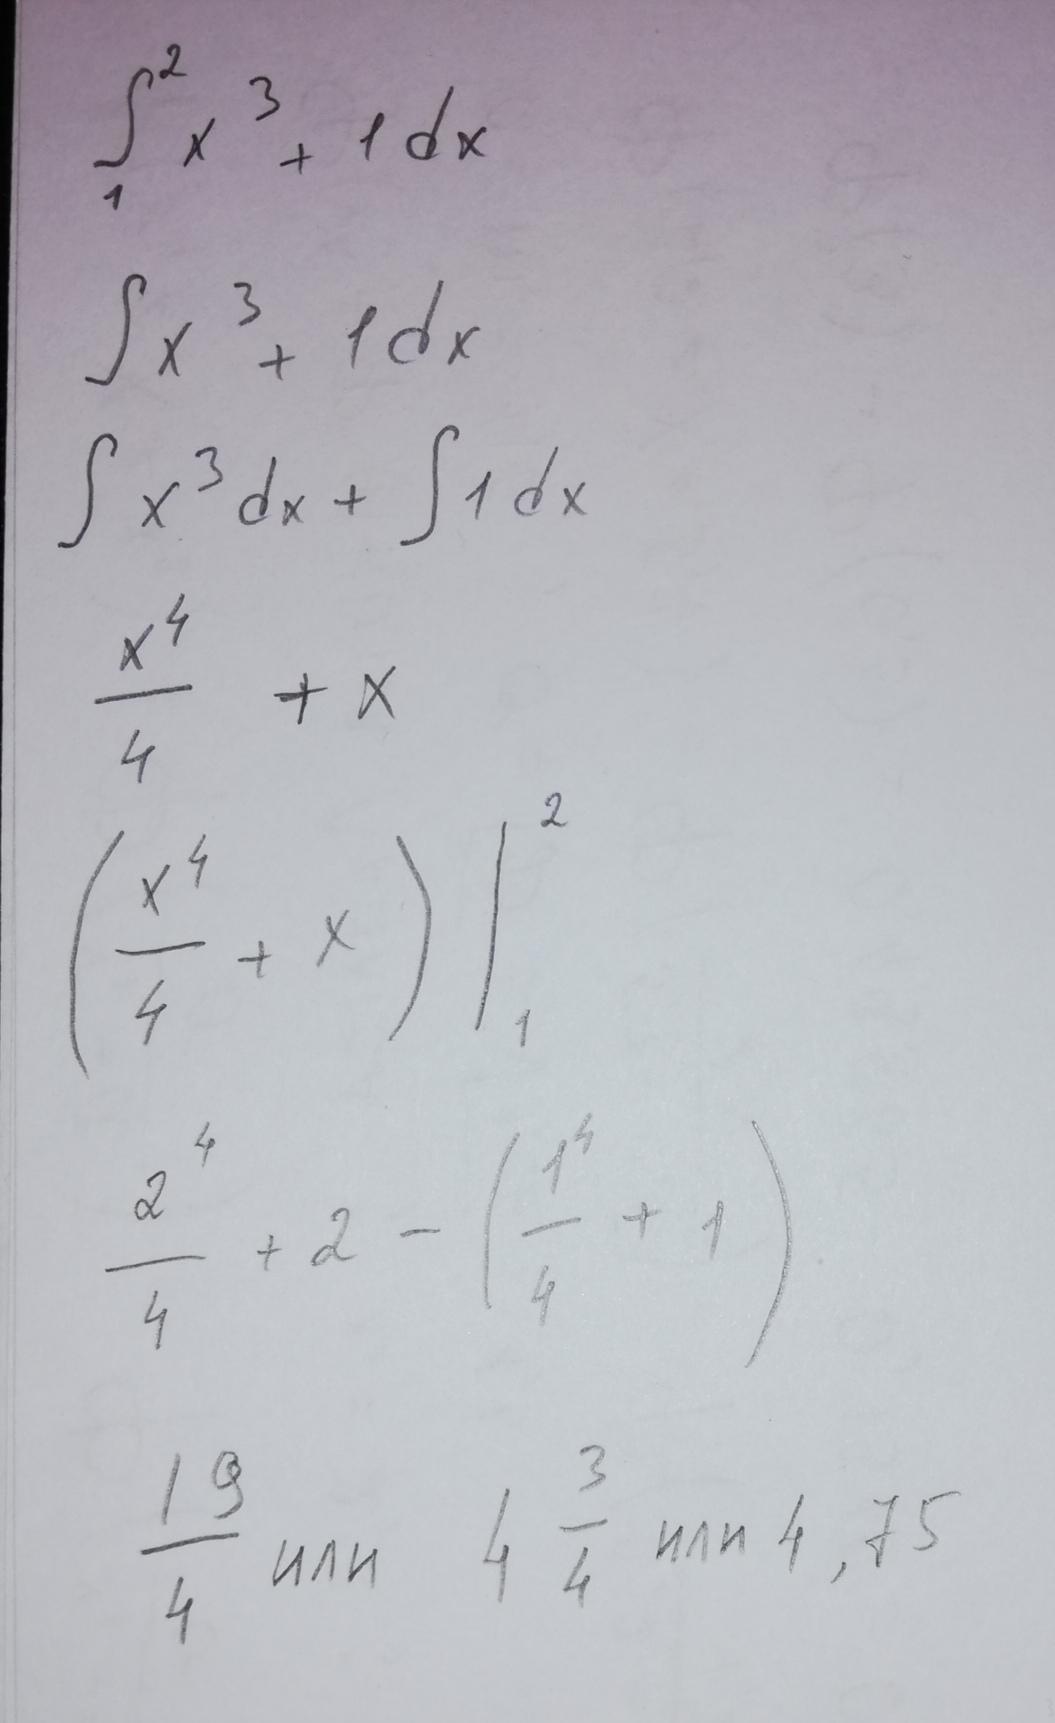 ∫₁² x³ + 1 dx
∫ x³ + 1 dx
∫ x³ dx + ∫ 1 dx
x⁴/4 + x
(x⁴/4 + x) |₁²
2⁴/4 + 2 − (1⁴/4 + 1)
19/4 или 4 3/4 или 4,75